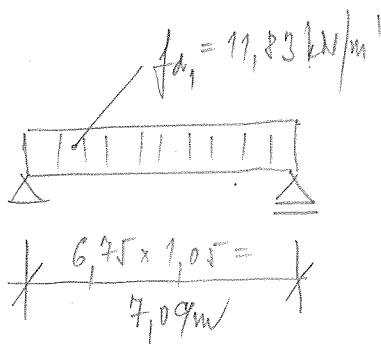 fd₁ = 11,83 kN/m'
6,75 x 1,05 =
7,09m